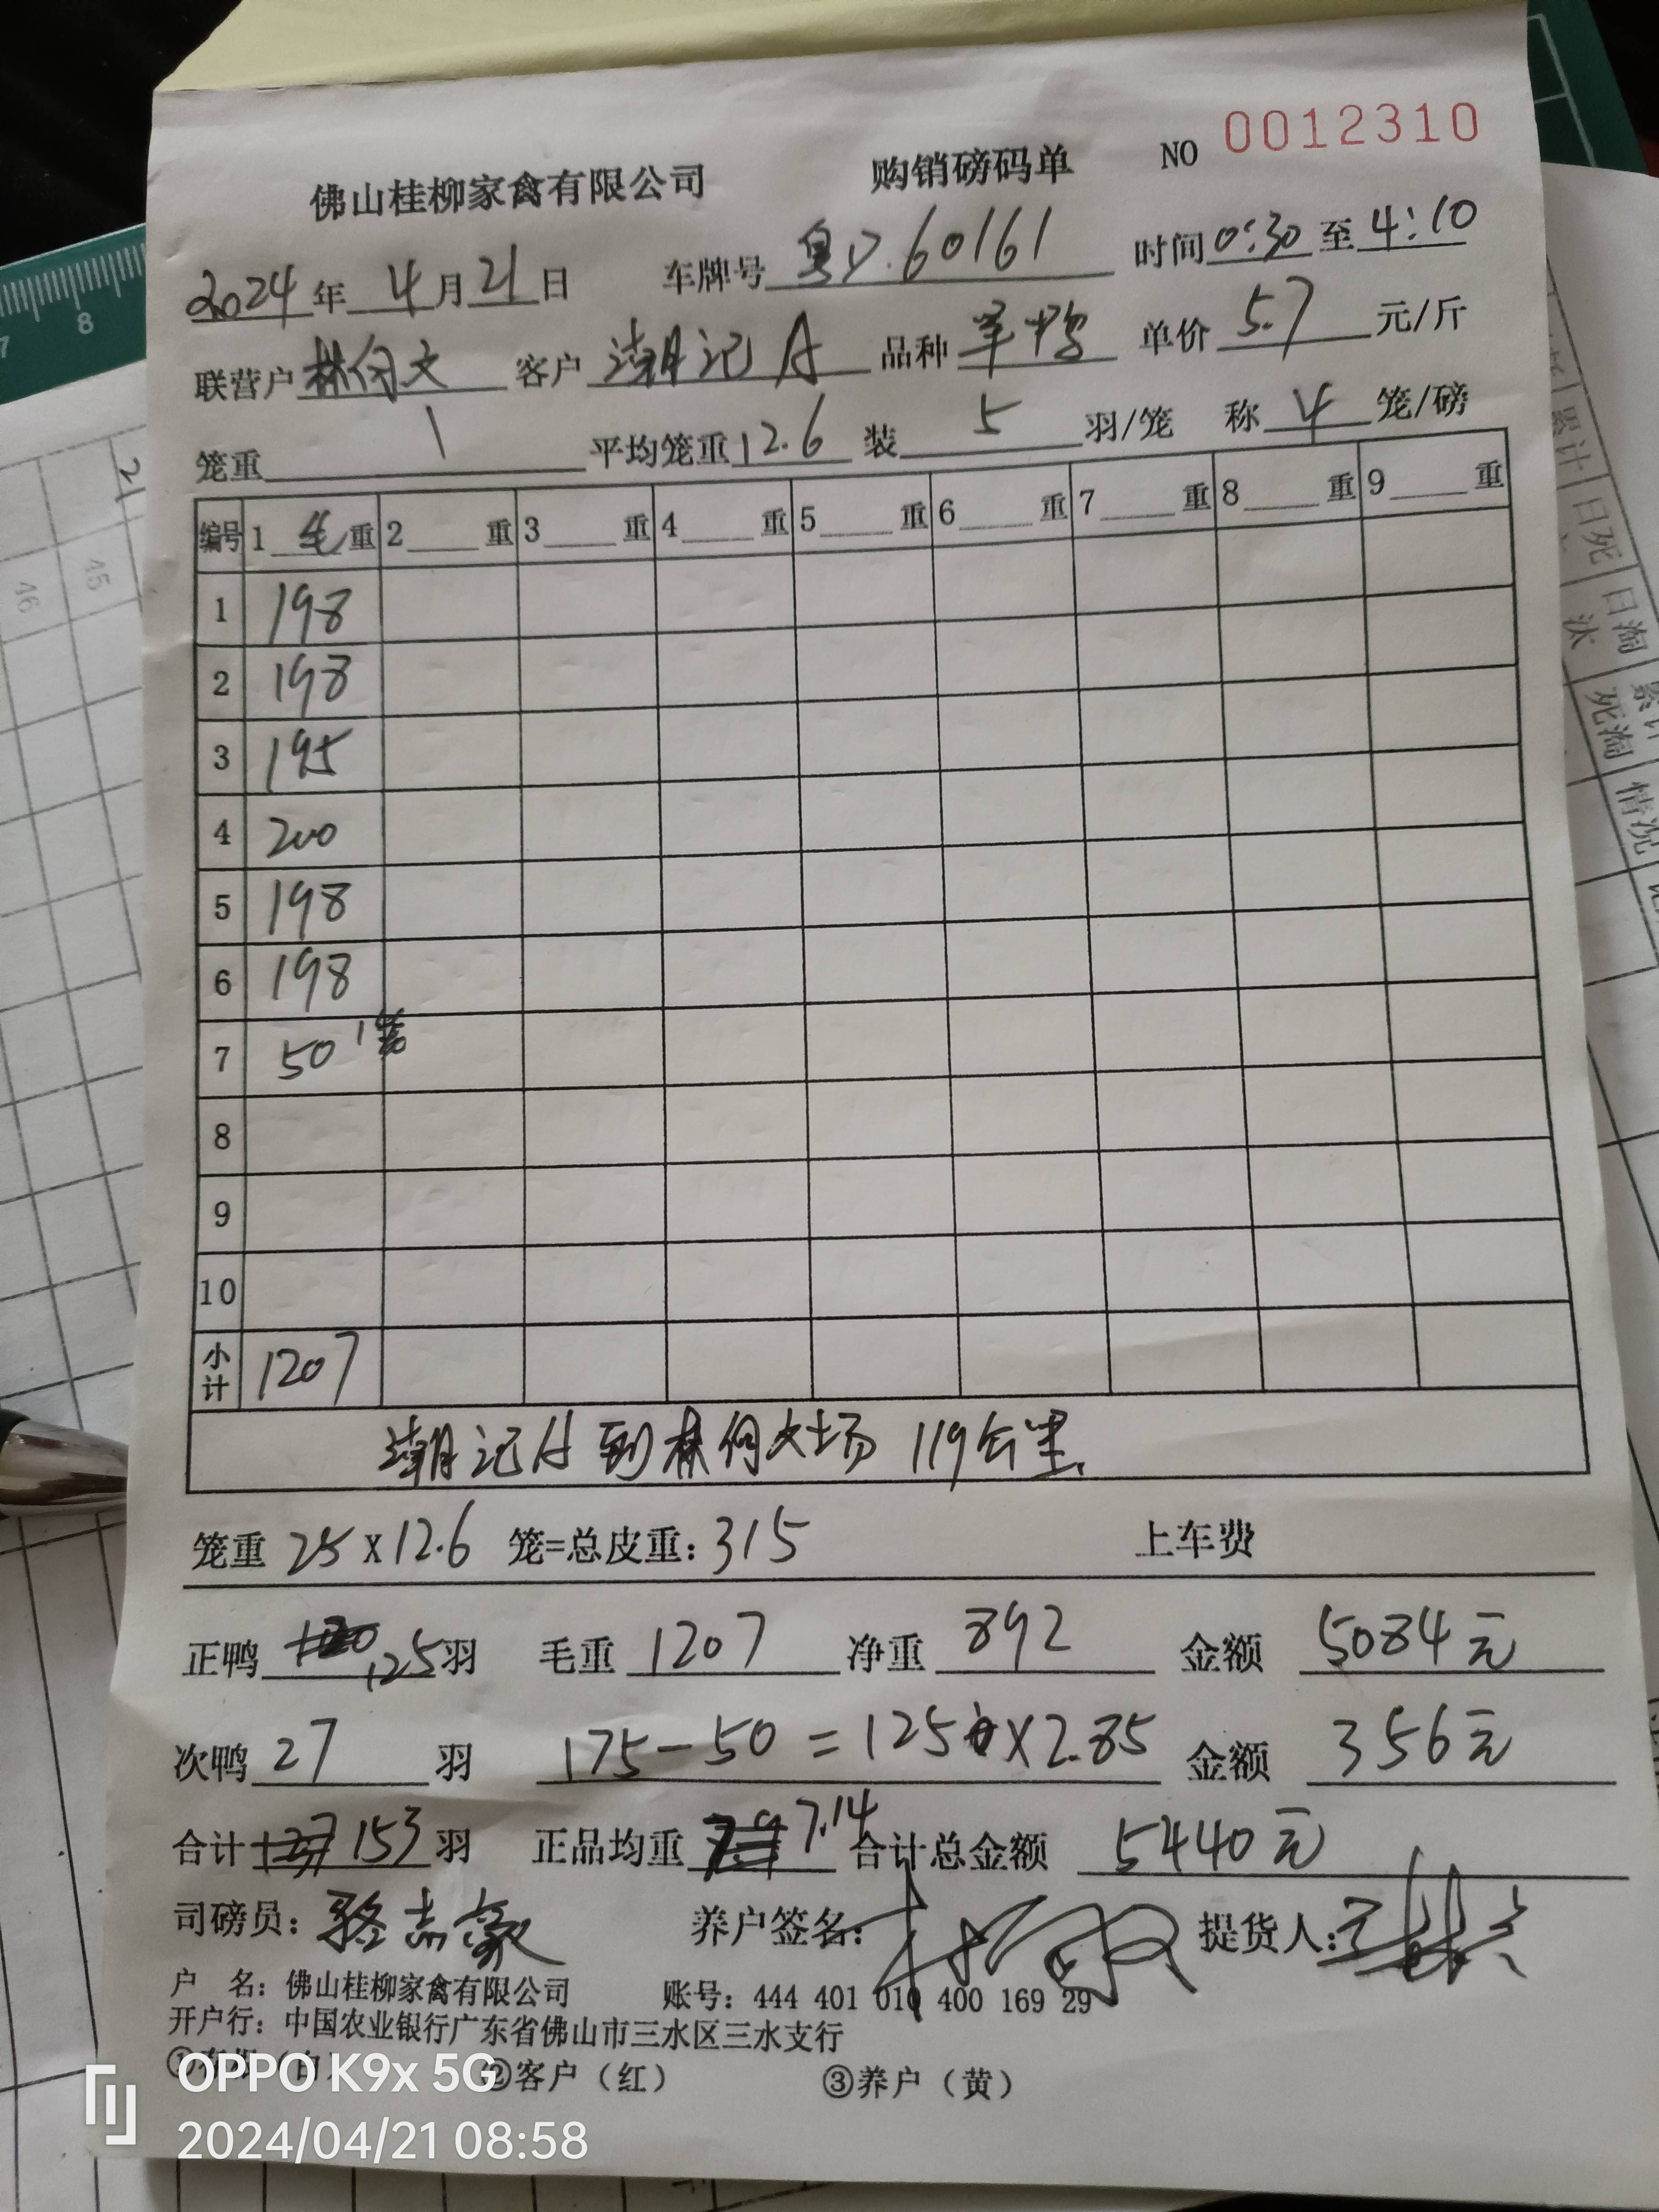 佛山桂柳家禽有限公司 购销磅码单 NO 0012310
2024年 4月21日 车牌号 粤D.60161 时间0:30至4:10
联营户林何文 客户 潮记A 品种 单价 5.7 元/斤
笼重 1 平均笼重12.6 装 5 羽/笼 称 4 笼/磅
编号 1 毛重 2 重 3 重 4 重 5 重 6 重 7 重 8 重 9 重
1 198
2 198
3 195
4 200
5 198
6 198
7 50 1笼
8
9
10
小计 1207
潮记A到林何文场 119公里
笼重 25×12.6 笼=总皮重:315 上车费
正鸭 125羽 毛重 1207 净重 892 金额 5084元
次鸭 27 羽 175-50=125×2.85 金额 356元
合计 153羽 正品均重 7.14 合计总金额 5440元
司磅员:骆志豪 养户签名: 提货人:
户 名:佛山桂柳家禽有限公司 账号:444 401 010 400 169 29
开户行:中国农业银行广东省佛山市三水区三水支行
②客户(红) ③养户(黄)
OPPO K9x 5G
2024/04/21 08:58
21
45
46
7
8
累计
日死
日淘汰
累计死淘
情况